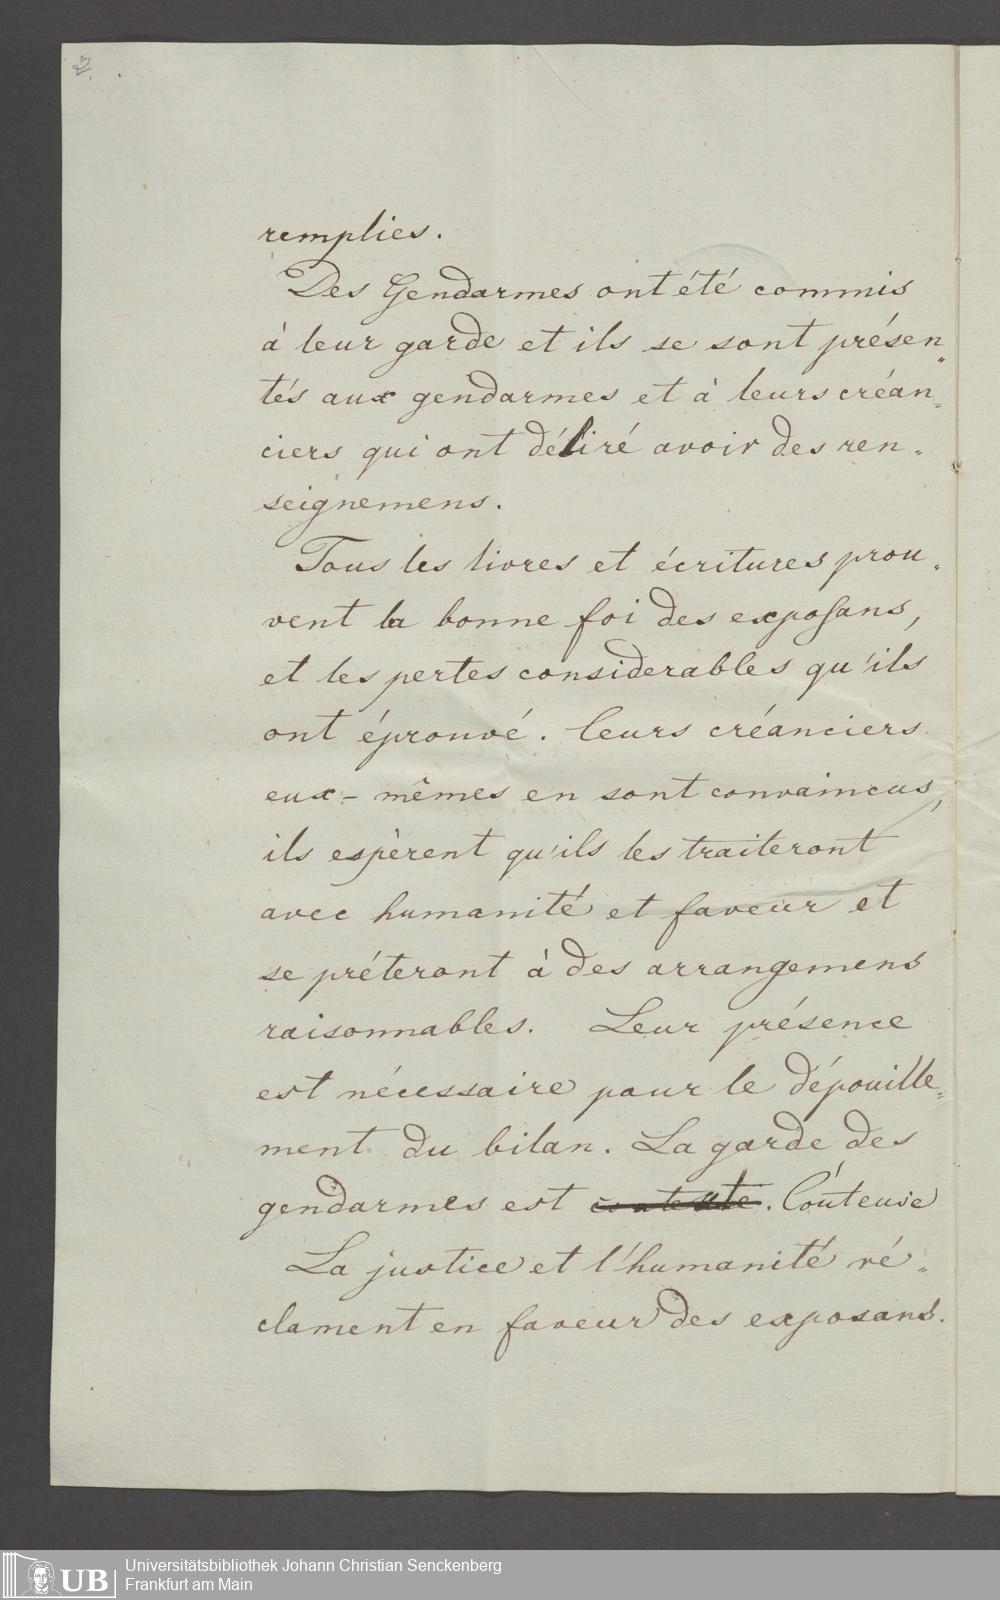 2.
remplies.
Des Gendarmes ont été commis
à leur garde et ils se sont présen„
tés aux gendarmes et à leurs créan„
ciers qui ont désiré avoir des ren„
seignemens.
Tous les livres et écritures prou„
vent la bonne foi des exposans,
et les pertes considerables qu'ils
ont éprouvé. leurs créanciers
eux-mêmes en sont convaincus,
ils espèrent qu'ils les traiteront
avec humanité et faveur et
se préteront à des arrangemens
raisonnables. Leur présence
est nécessaire pour le dépouille„
ment du bilan. La garde des
gendarmes est . Coúteuse
La justice et l'humanité ré„
clament en faveur des exposans.
UB
Universitätsbibliothek Johann Christian Senckenberg
Frankfurt am Main